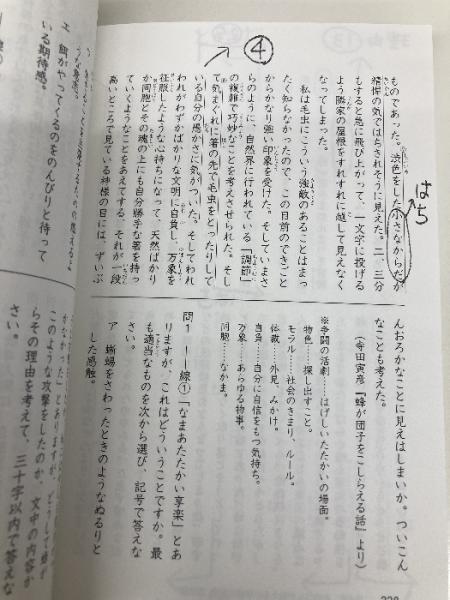 ④
はち
ものであった。渋色をした小さなからだが
精悍の気ではちきれそうに見えた。二、三分
もすると急に飛び上がって、一文字に投げる
よう隣家の屋根をすれすれに越して見えなく
なってしまった。
私は毛虫にこういう強敵のあることはまっ
たく知らなかったので、この目前のできごと
からかなり強い印象を受けた。そしていまさ
らのように、自然界に行われている「調節」
の複雑で巧妙なことを考えさせられた。そし
て気まぐれに箸の先で毛虫をとったりして
いる自分の愚かさに気がついた。そしてわれ
われがわずかばかりな文明に自負し、万象を
征服したような心持ちになって、天然ばかり
か同胞とその魂の上にも自分勝手な箸を持っ
ていくようなことをあえてする、それが一段
高いところで見ている神様の目には、ずいぶ
んおろかなことに見えはしまいか。ついこん
なことも考えた。
(寺田寅彦『蜂が団子をこしらえる話』より)
※争闘の活劇……はげしいたたかいの場面。
物色……探し出すこと。
モラル……社会のきまり、ルール。
体裁……外見、みかけ。
自負……自分に自信をもつ気持ち。
万象……あらゆる物事。
同胞……なかま。
問1 ――線①「なまあたたかい享楽」とあ
りますが、これはどういうことですか。最
も適当なものを次から選び、記号で答えな
さい。
ア 蜥蜴をさわったときのようなぬるりと
した感触。
エ 餌がやってくるのをのんびりと待って
いる期待感。
このような攻撃をしたのか、文中の内容か
らその理由を考えて、三十字以内で答えな
さい。